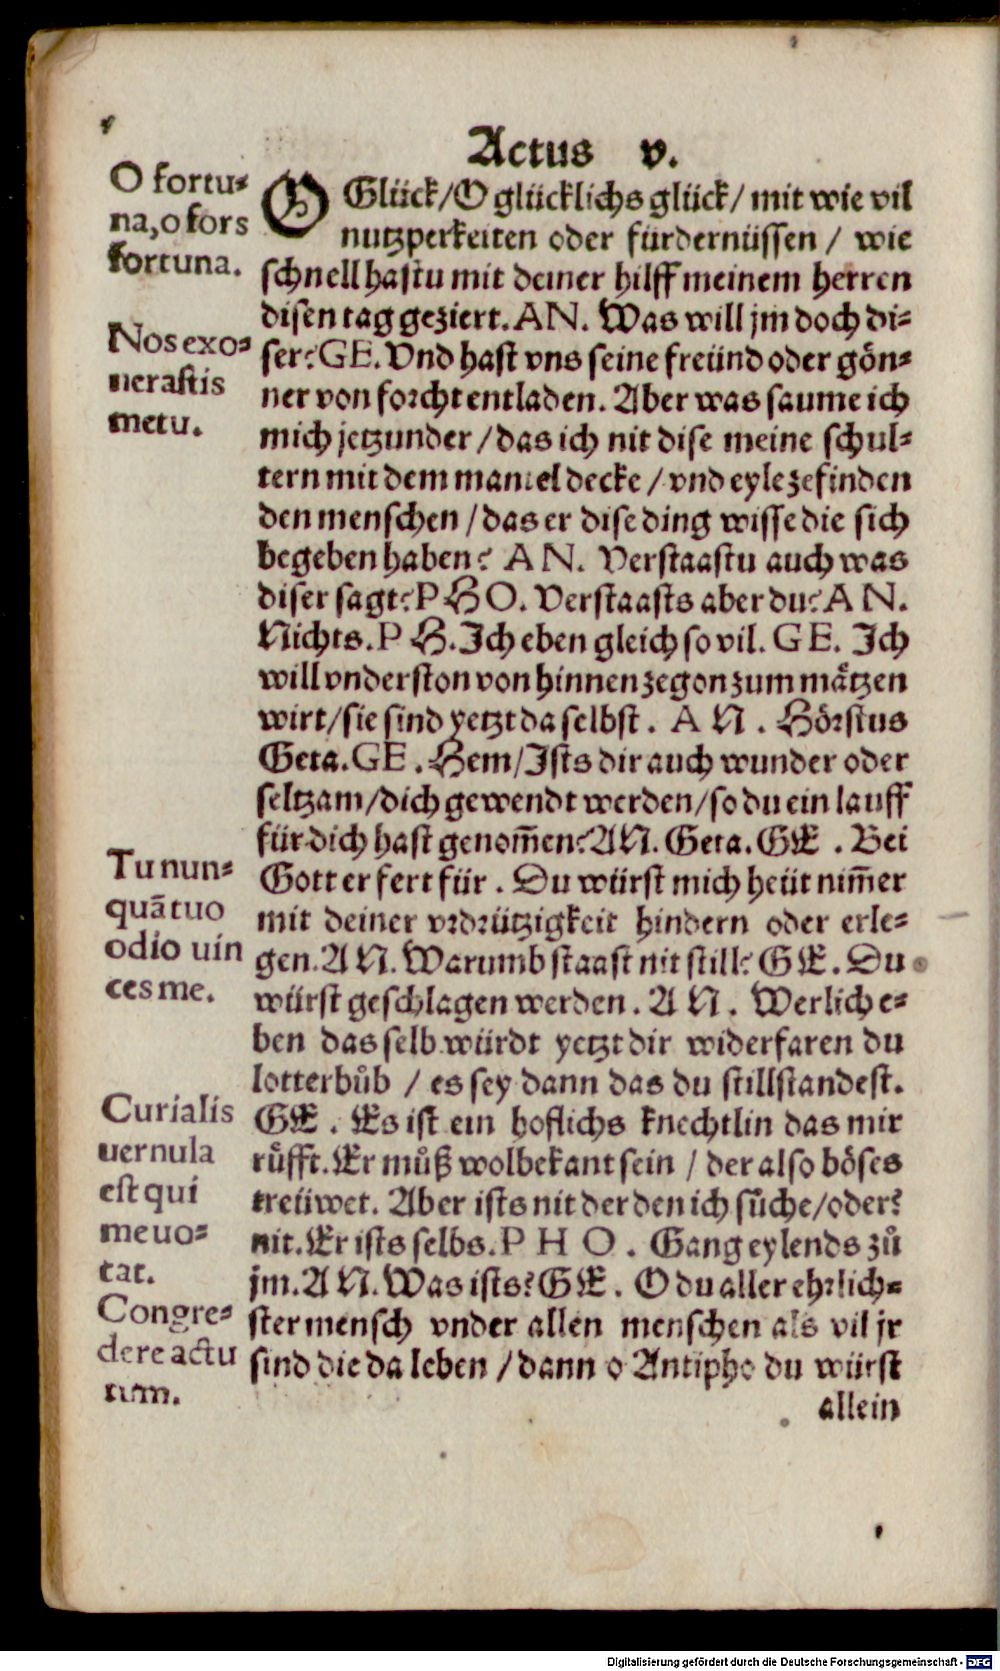 Actus v.
O fortu⸗
na, o fors
fortuna.
Nos exo⸗
nerastis
metu.
Tu nun⸗
quā tuo
odio uin
ces me.
Curialis
uernula
est qui
me uo⸗
cat.
Congre⸗
dere actu
tum.
O Glück/O glücklichs glück/ mit wie vil
nutzperkeiten oder fürdernüssen / wie
schnell hastu mit deiner hilff meinem herren
disen tag geziert. AN. Was will jm doch di⸗
ser? GE. Vnd hast vns seine freünd oder gön⸗
ner von forcht entladen. Aber was saume ich
mich jetzunder / das ich nit dise meine schul⸗
tern mit dem mantel decke / vnd eyle zefinden
den menschen / das er dise ding wisse die sich
begeben haben? AN. Verstaastu auch was
diser sagt? PHO. Verstaasts aber du? AN.
Nichts. PH. Ich eben gleich so vil. GE. Ich
will vnderston von hinnen zegon zum mätzen
wirt/sie sind yetzt da selbst. AN. Hörstus
Geta. GE. Hem/Ists dir auch wunder oder
seltzam/dich gewendt werden/so du ein lauff
für dich hast genom̄en? AN. Geta. GE. Bei
Gott er fert für. Du würst mich heüt nim̄er
mit deiner vrdrützigkeit hindern oder erle⸗
gen. AN. Warumb staast nit still? GE. Du
würst geschlagen werden. AN. Werlich e⸗
ben das selb würdt yetzt dir widerfaren du
lotterbůb / es sey dann das du stillstandest.
GE. Es ist ein hoflichs knechtlin das mir
růfft. Er můß wolbekant sein / der also böses
treüwet. Aber ists nit der den ich sůche/oder?
nit. Er ists selbs. PHO. Gang eylends zů
jm. AN. Was ists? GE. O du aller ehrlich⸗
ster mensch vnder allen menschen als vil jr
sind die da leben / dann o Antipho du würst
allein
Digitalisierung gefördert durch die Deutsche Forschungsgemeinschaft - DFG